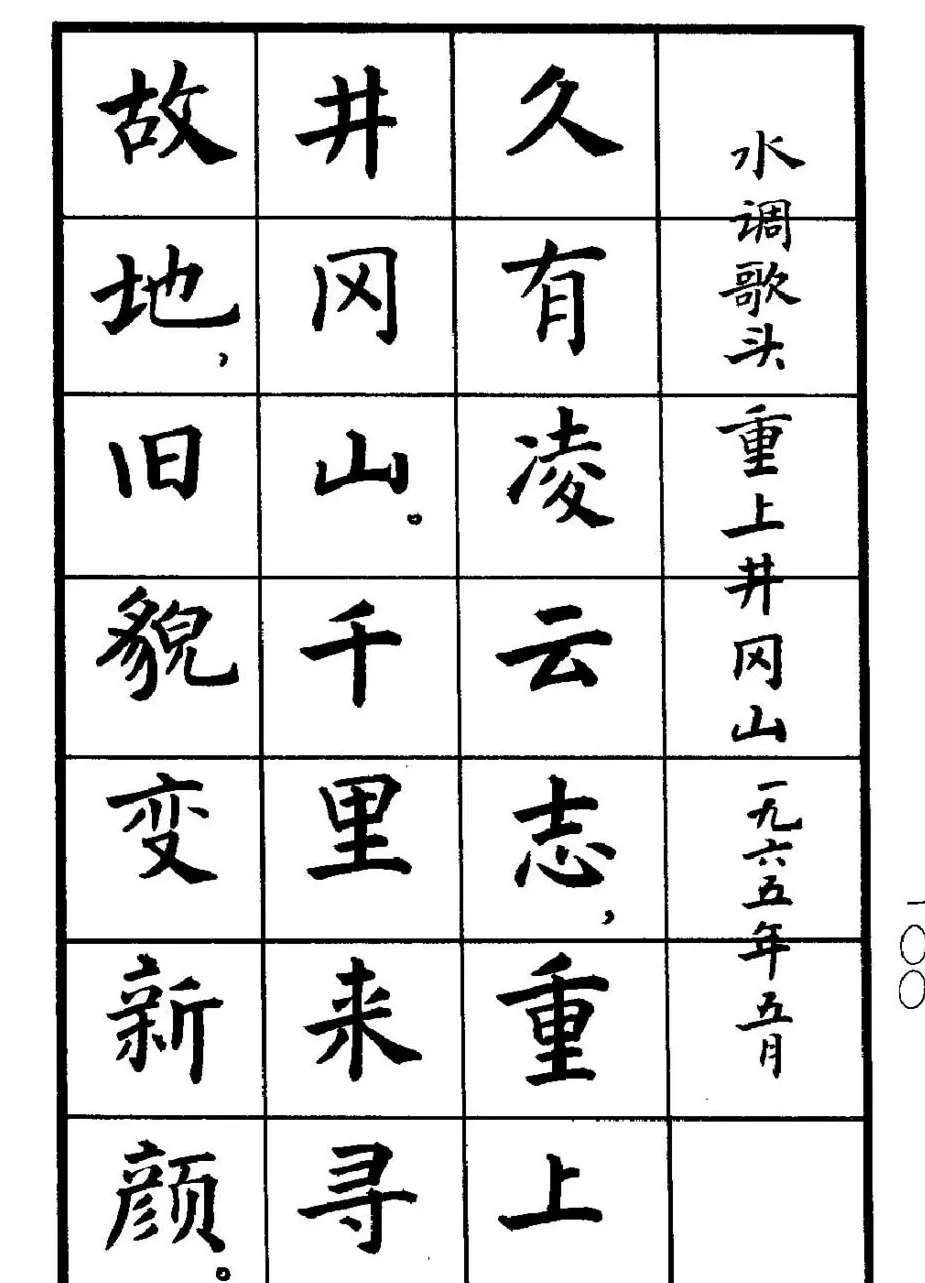 水调歌头 重上井冈山 一九六五年五月
久有凌云志，重上
井冈山。千里来寻
故地，旧貌变新颜。
一〇〇